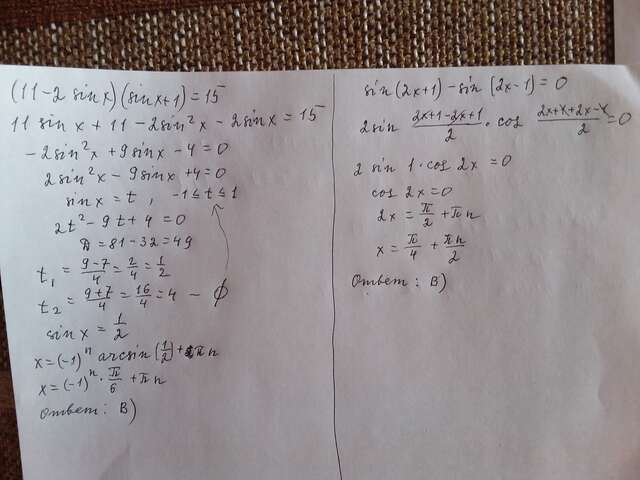 (11-2 sin x)(sin x+1)=15
11 sin x + 11 - 2sin²x - 2sin x = 15
-2sin²x + 9sin x - 4=0
2sin²x - 9sin x +4=0
sin x = t, -1≤t≤1
2t²-9t+4=0
D=81+32=49
t₁ = (9-7)/4 = 2/4 = 1/2
t₂ = (9+7)/4 = 16/4 = 4 - ∅
sin x = 1/2
x=(-1)ⁿ arcsin(1/2)+πn
x=(-1)ⁿ·π/6+πn
Ответ: B)
sin(2x+1)-sin(2x-1)=0
2sin (2x+1-2x+1)/2 · cos (2x+1+2x-1)/2 =0
2 sin 1·cos 2x =0
cos 2x=0
2x= π/2 +πn
x= π/4 + πn/2
Ответ: B)